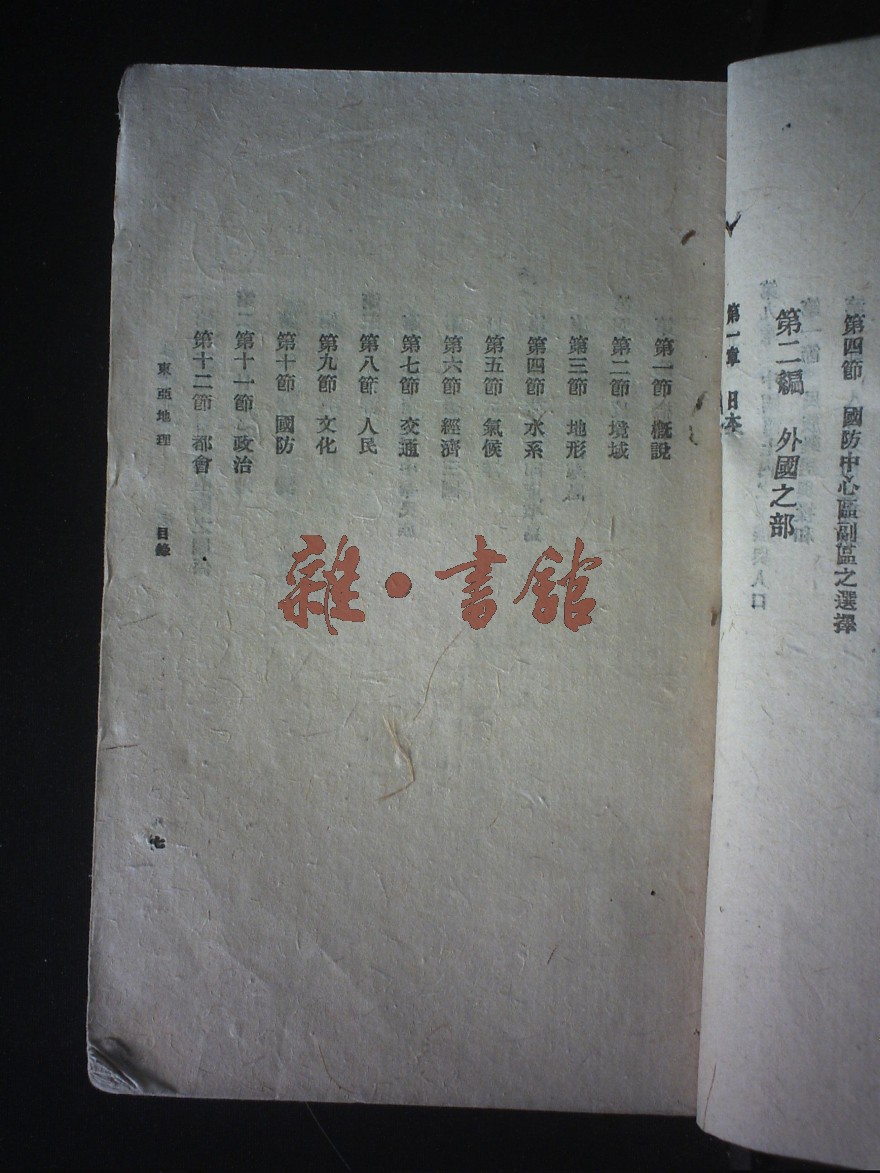 第四節 國防中心區副區之選擇
第二編 外國之部
第一章 日本
第一節 概說
第二節 境域
第三節 地形
第四節 水系
第五節 氣候
第六節 經濟
第七節 交通
第八節 人民
第九節 文化
第十節 國防
第十一節 政治
第十二節 都會
東亞地理 目錄
七
雜·書館